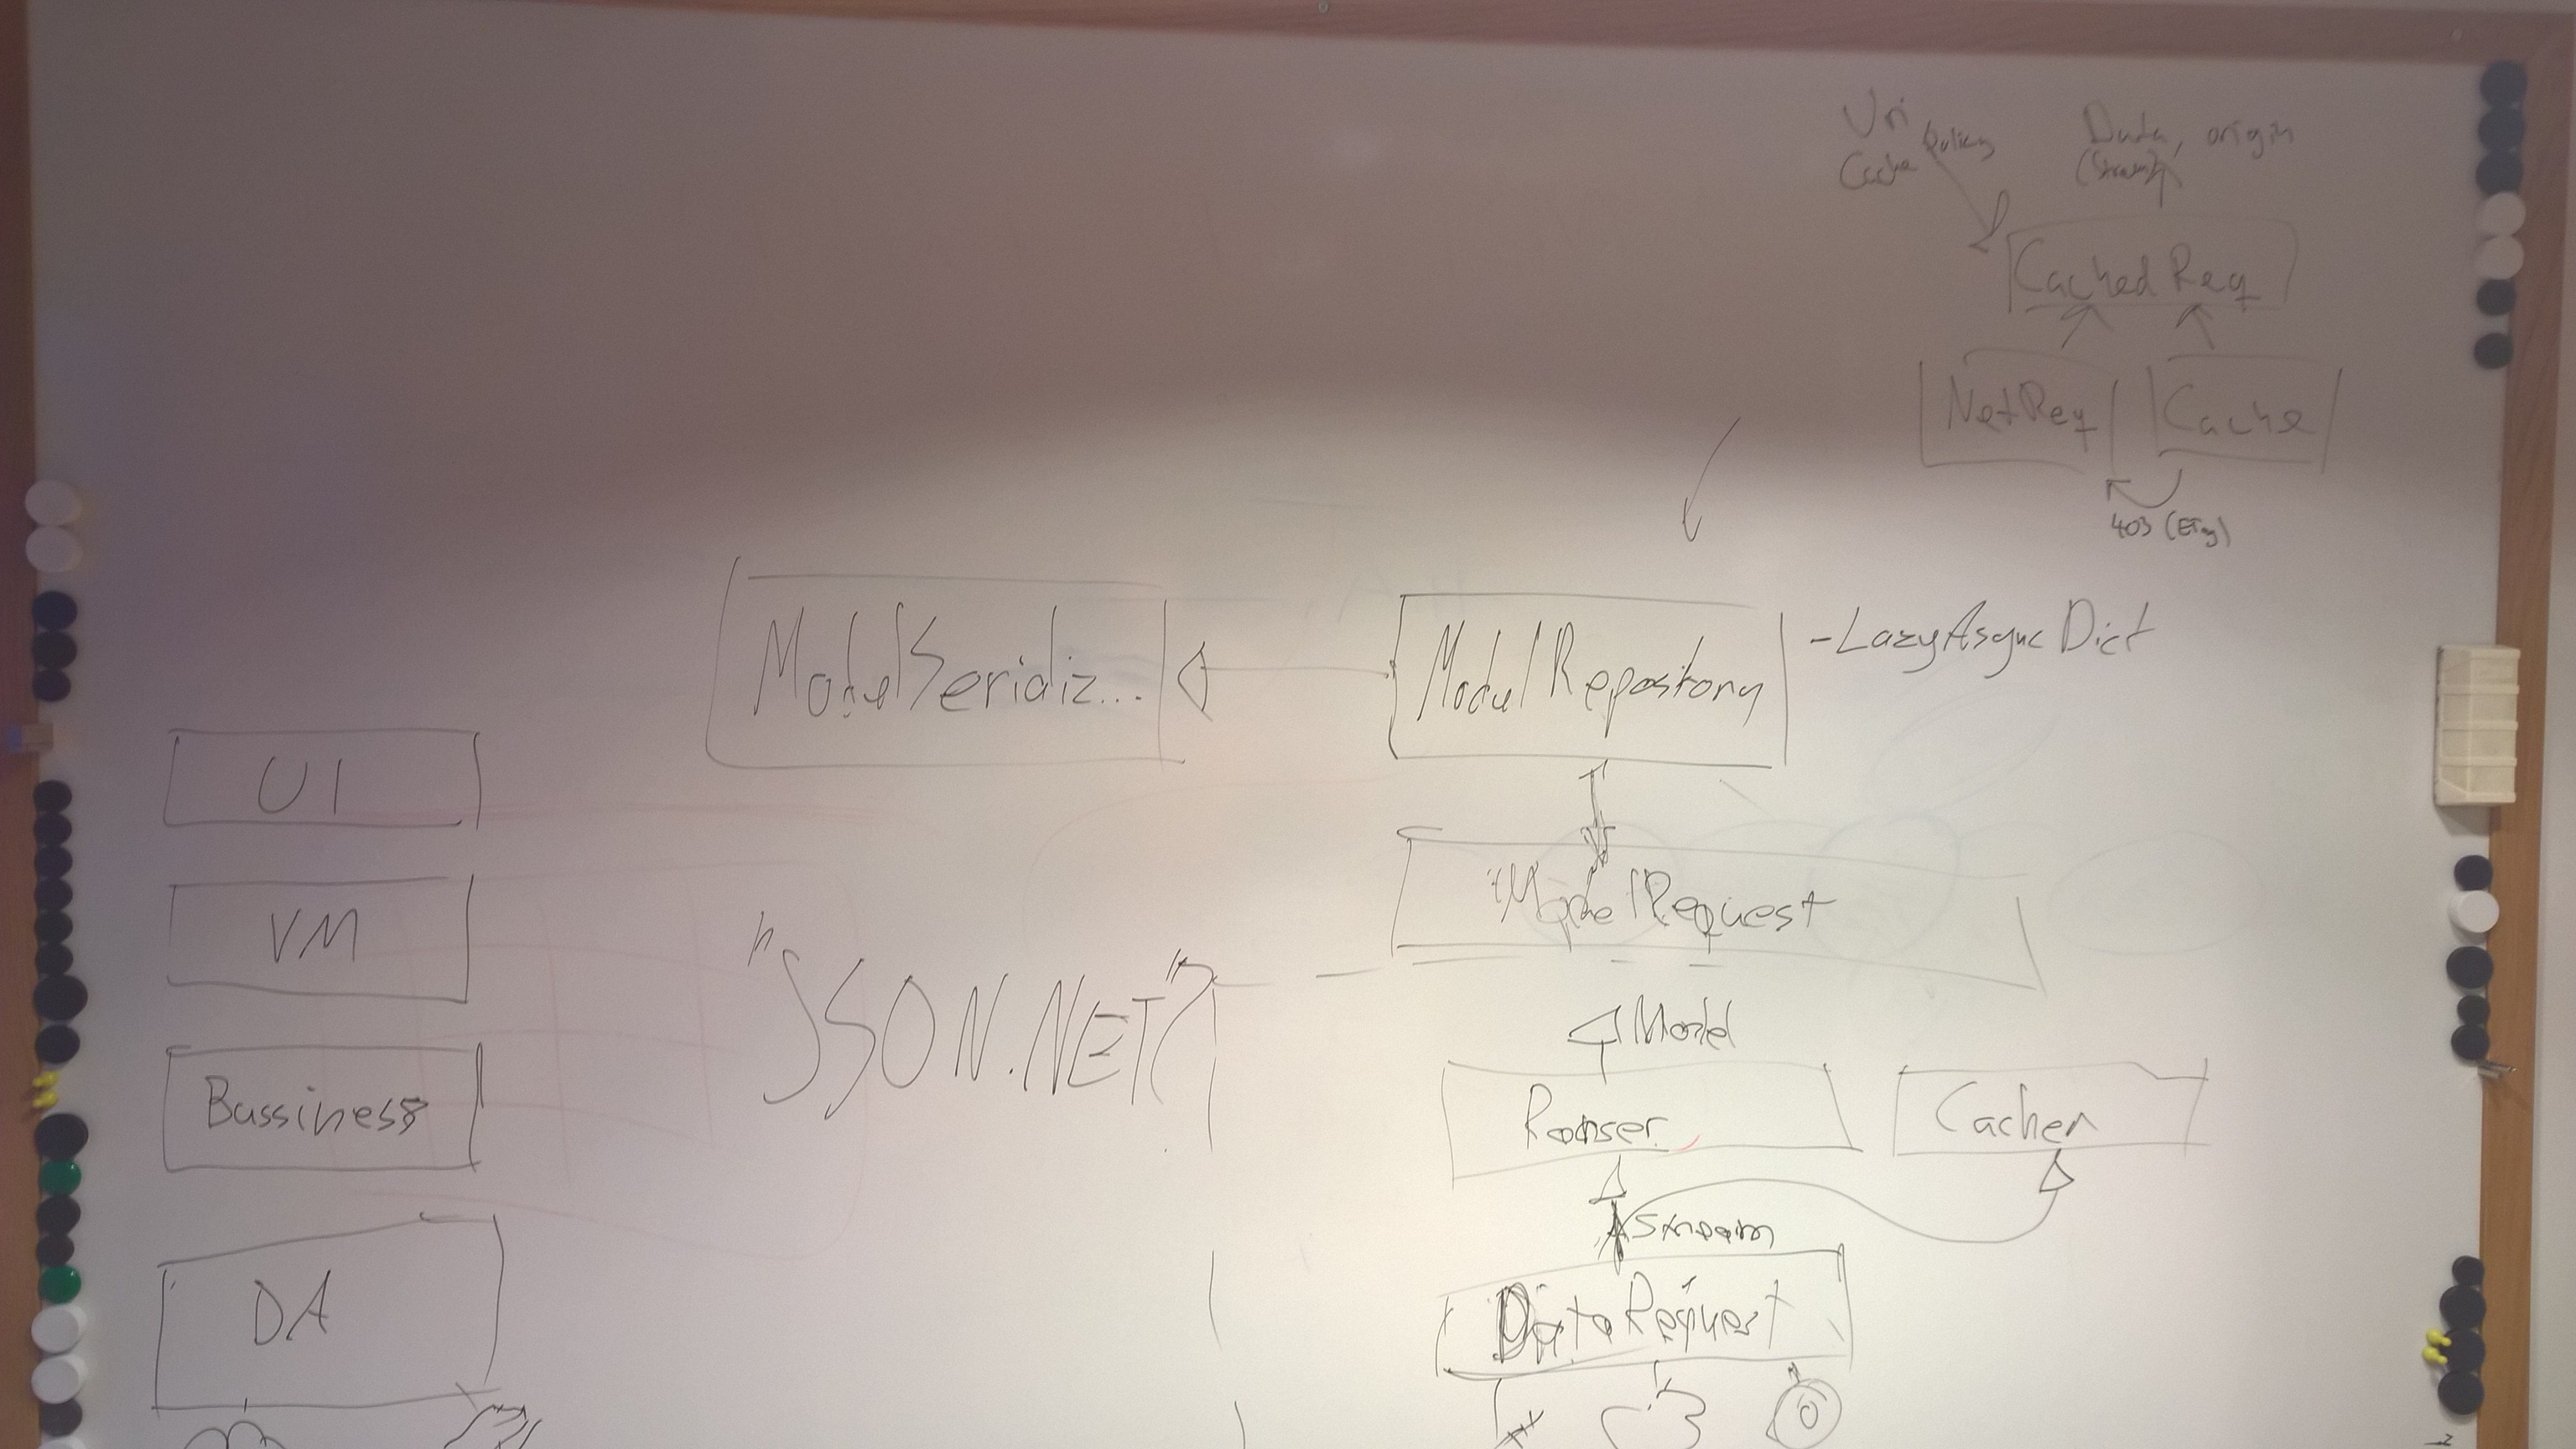 Uri
Cache Policy
Data, origin
(Stream)
CachedReq
NetReq
Cache
403 (ETag)
ModelSerializ...
ModelRepository
-LazyAsyncDict
UI
ModelRequest
VM
"JSON.NET"?
Model
Bussiness
Cacher
Stream
DA
DataRequest